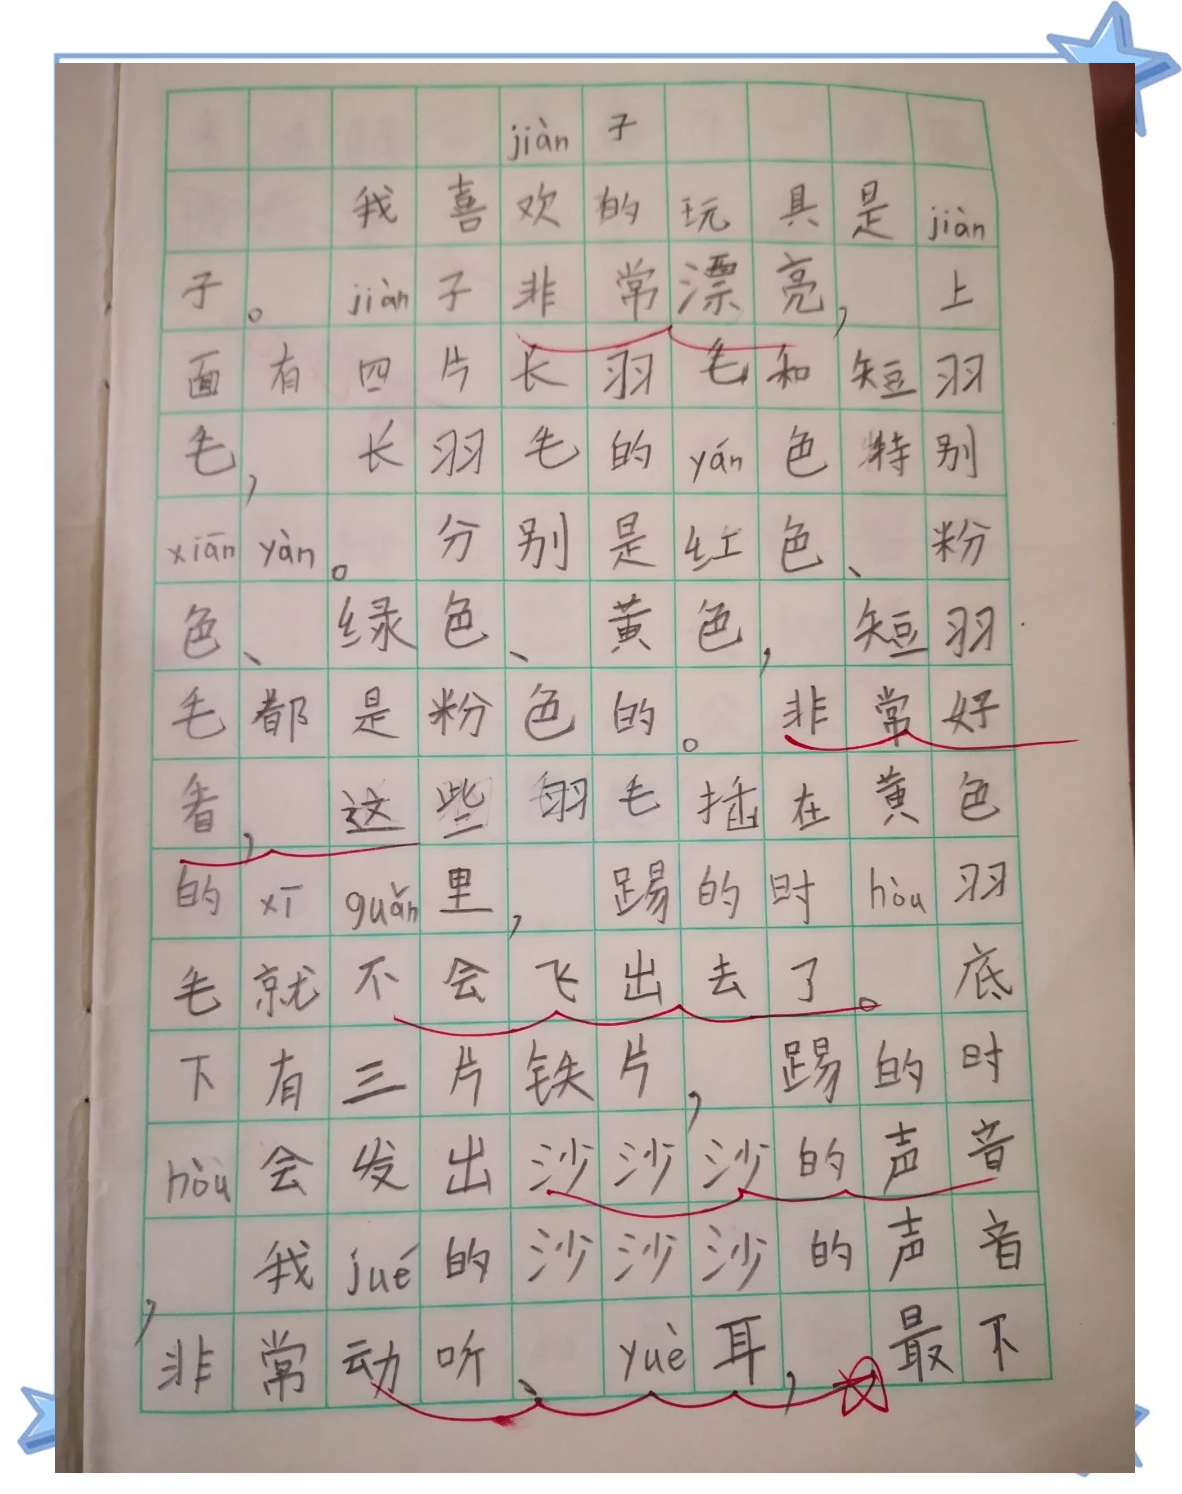 jiàn子
我喜欢的玩具是jiàn
子。jiàn子非常漂亮，上
面有四片长羽毛和短羽
毛，长羽毛的yán色特别
xiān yàn。分别是红色、粉
色、绿色、黄色，短羽
毛都是粉色的。非常好
看，这些羽毛插在黄色
的xī guǎn里，踢的时hòu羽
毛就不会飞出去了。底
下有三片铁片，踢的时
hòu会发出沙沙沙的声音
，我jué的沙沙沙的声音
非常动听、yuè耳，最下